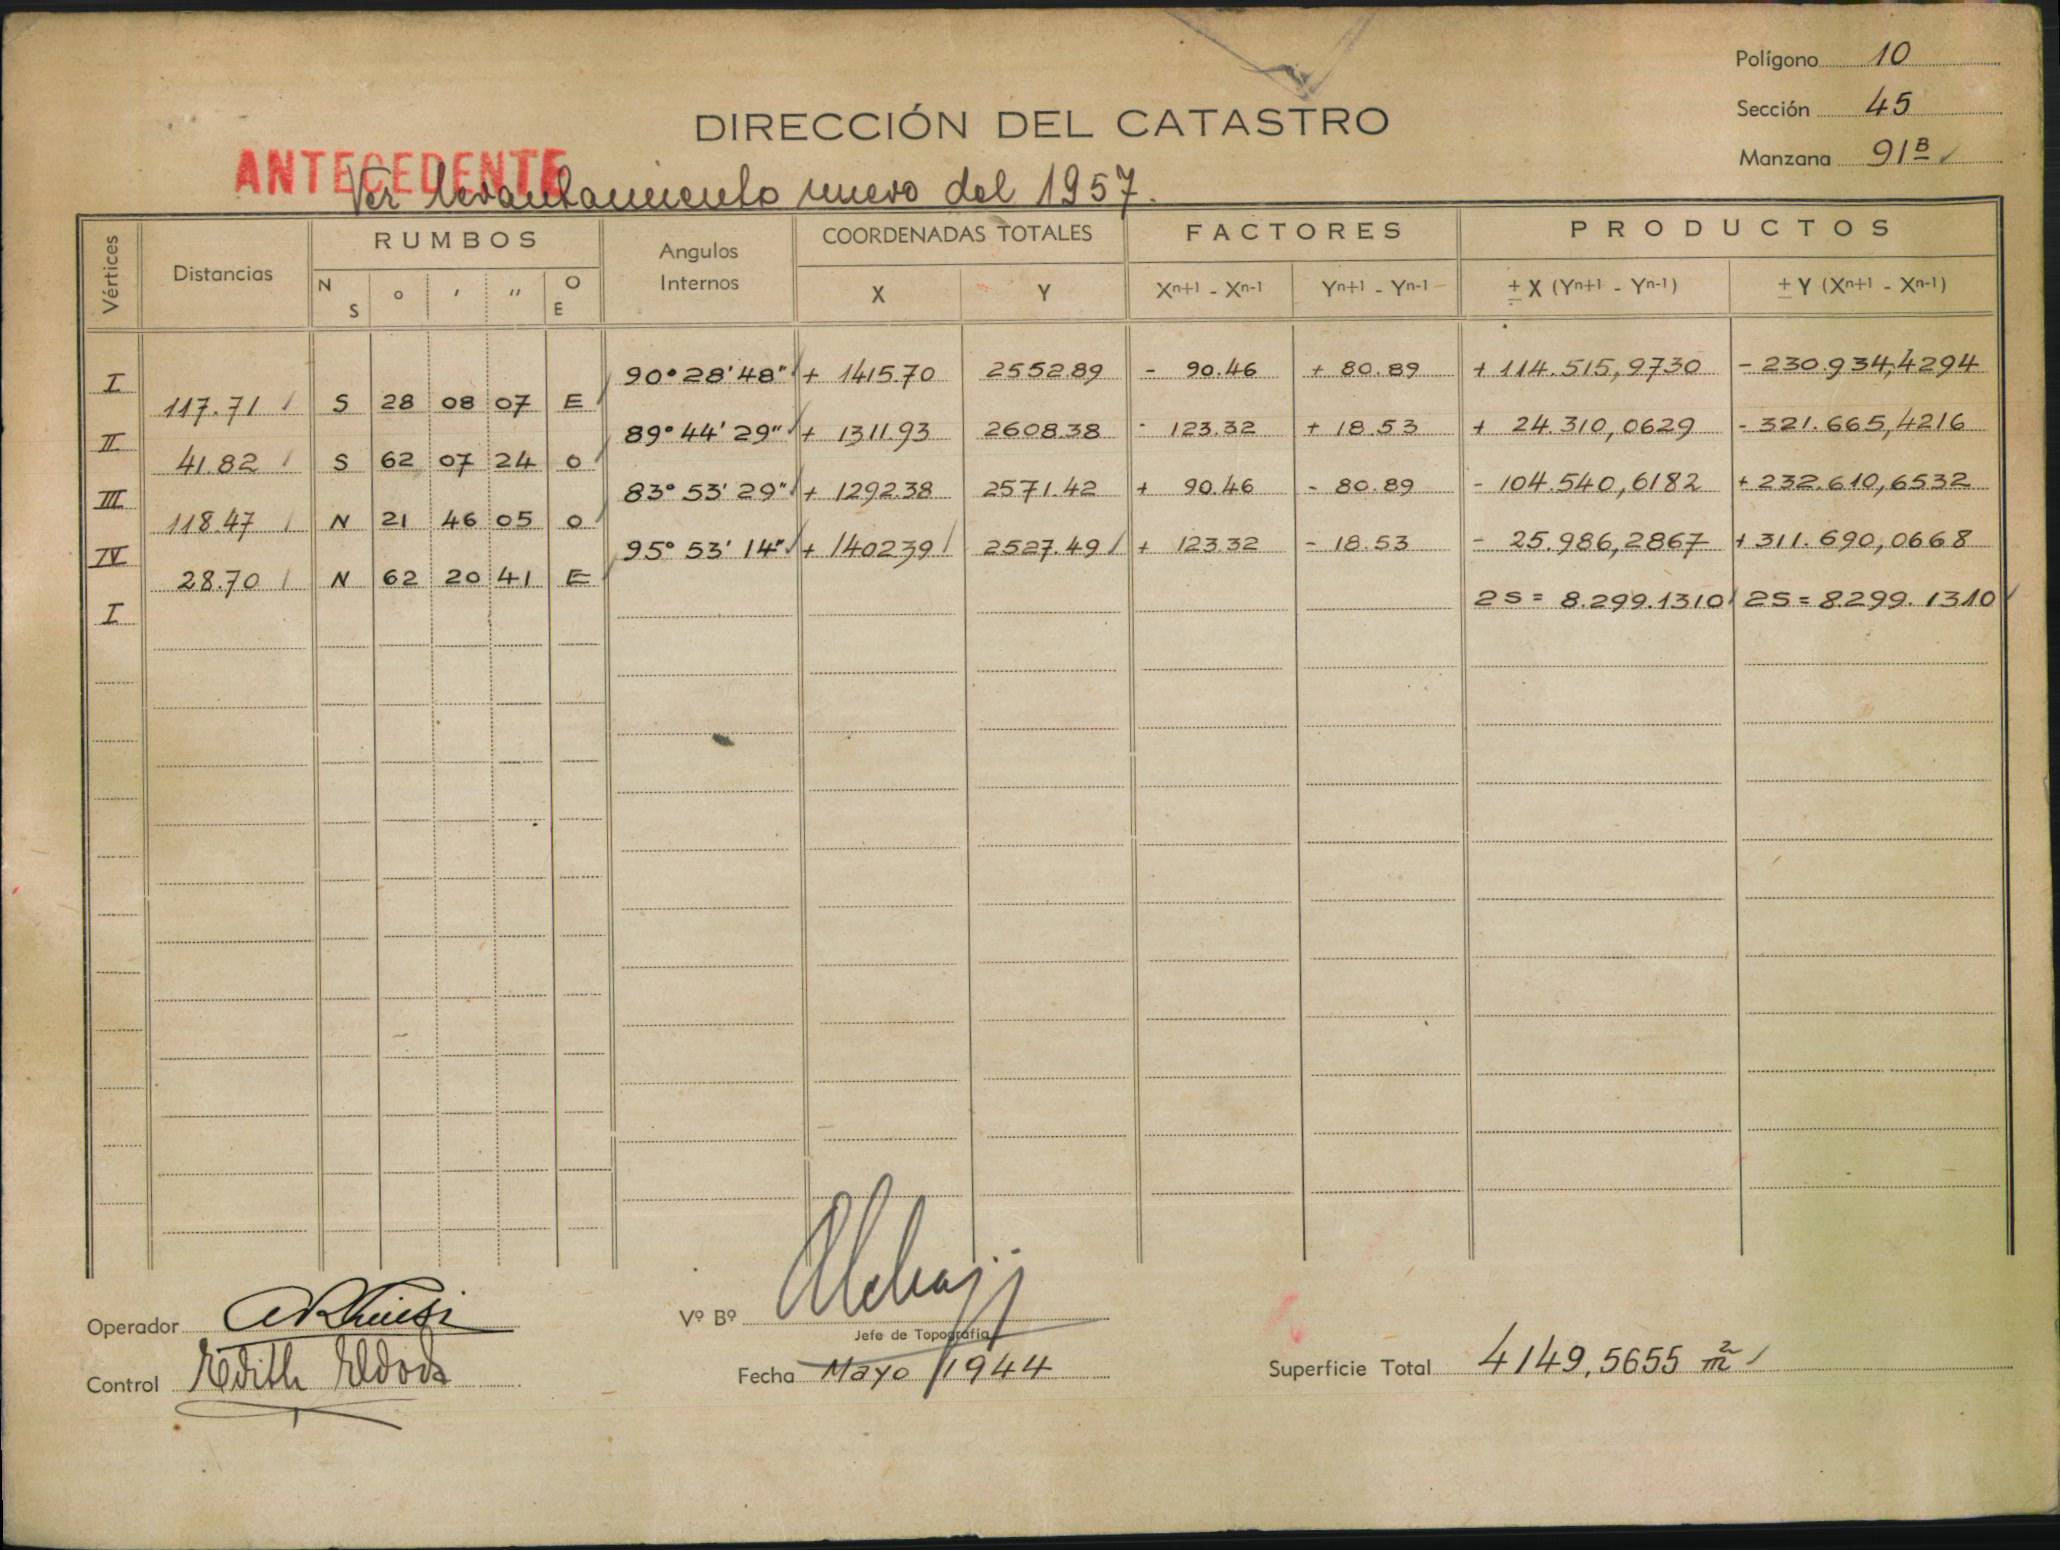 Polígono 10
Sección 45
Manzana 91 B
DIRECCIÓN DEL CATASTRO
ANTECEDENTE
Ver levantamiento nuevo del 1957.
Vértices Distancias RUMBOS Angulos Internos COORDENADAS TOTALES FACTORES PRODUCTOS
N S ° ' " O E X Y Xn+1 - Xn-1 Yn+1 - Yn-1 ± X (Yn+1 - Yn-1) ± Y (Xn+1 - Xn-1)
I 90° 28' 48" + 1415.70 2552.89 - 90.46 + 80.89 + 114.515,9730 - 230.934,4294
117.71 S 28 08 07 E
II 89° 44' 29" + 1311.93 2608.38 - 123.32 + 18.53 + 24.310,0629 - 321.665,4216
41.82 S 62 07 24 O
III 83° 53' 29" + 1292.38 2571.42 + 90.46 - 80.89 - 104.540,6182 + 232.610,6532
118.47 N 21 46 05 O
IV 95° 53' 14" + 1402.39 2527.49 + 123.32 - 18.53 - 25.986,2867 + 311.690,0668
28.70 N 62 20 41 E
I 2S = 8.299.1310 2S = 8.299.1310
Operador
Vº Bº
Jefe de Topografía
Control Edith
Fecha Mayo / 1944
Superficie Total 4149,5655 m²